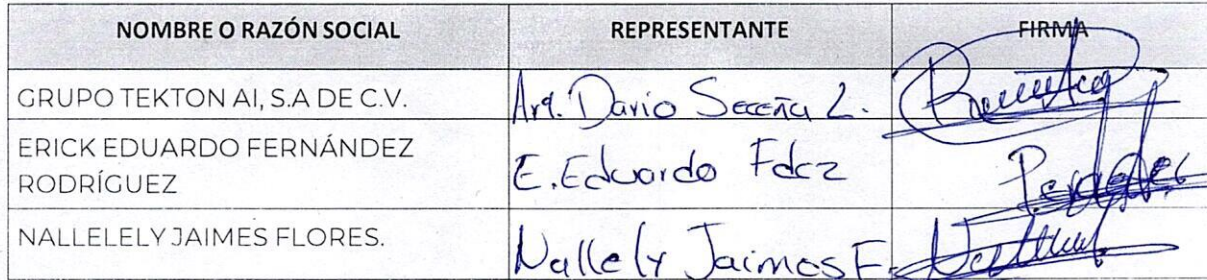 NOMBRE O RAZÓN SOCIAL REPRESENTANTE FIRMA
GRUPO TEKTON AI, S.A DE C.V. Arq. Dario L.
ERICK EDUARDO FERNÁNDEZ
RODRÍGUEZ E. Eduardo Fdez
NALLELELY JAIMES FLORES. Nallely Jaimes F.